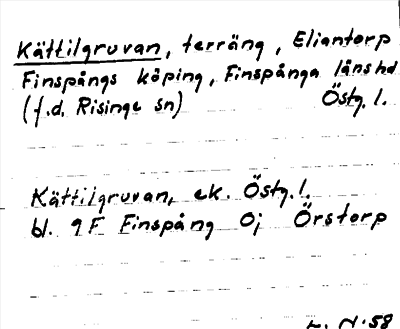 Kättilgruvan, terräng, Eliantorp
Finspångs köping, Finspånga länshd
(f.d. Risinge sn) Östg. l.
Kättilgruvan, ek. Östg. l.
bl. 9F Finspång 0j Örstorp